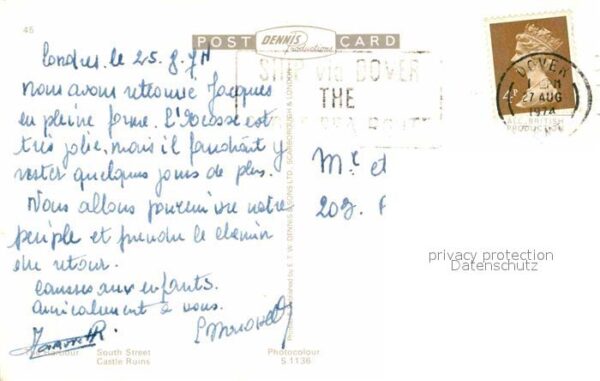 45
POST DENNIS Productions CARD
Londres le 25.8.74
Nous avons retrouvé Jacques
en pleine forme. L'Ecosse est
très jolie, mais il faudrait y
rester quelques jours de plus.
Nous allons poursuivre notre
périple et prendre le chemin
du retour.
aux enfants.
amicalement à vous.
SHIP via DOVER
THE
DOVER
27 AUG
1974
ALL BRITISH
PRODUCTION
Mr et
203. F
privacy protection
Datenschutz
by E. T. W. DENNIS & SONS LTD. SCARBOROUGH & LONDON
Harbour South Street
Castle Ruins
Photocolour
S 1136